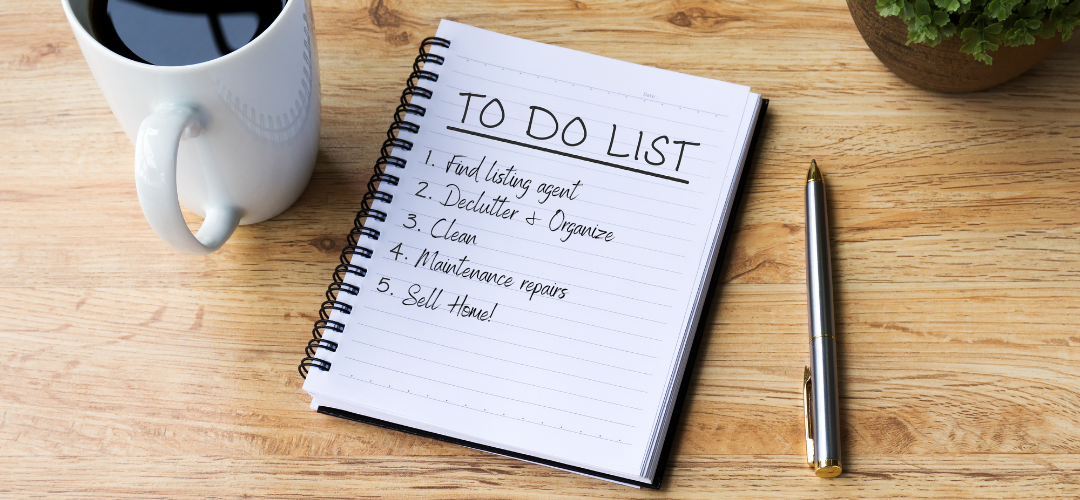 TO DO LIST
1. Find listing agent
2. Declutter & Organize
3. Clean
4. Maintenance repairs
5. Sell Home!